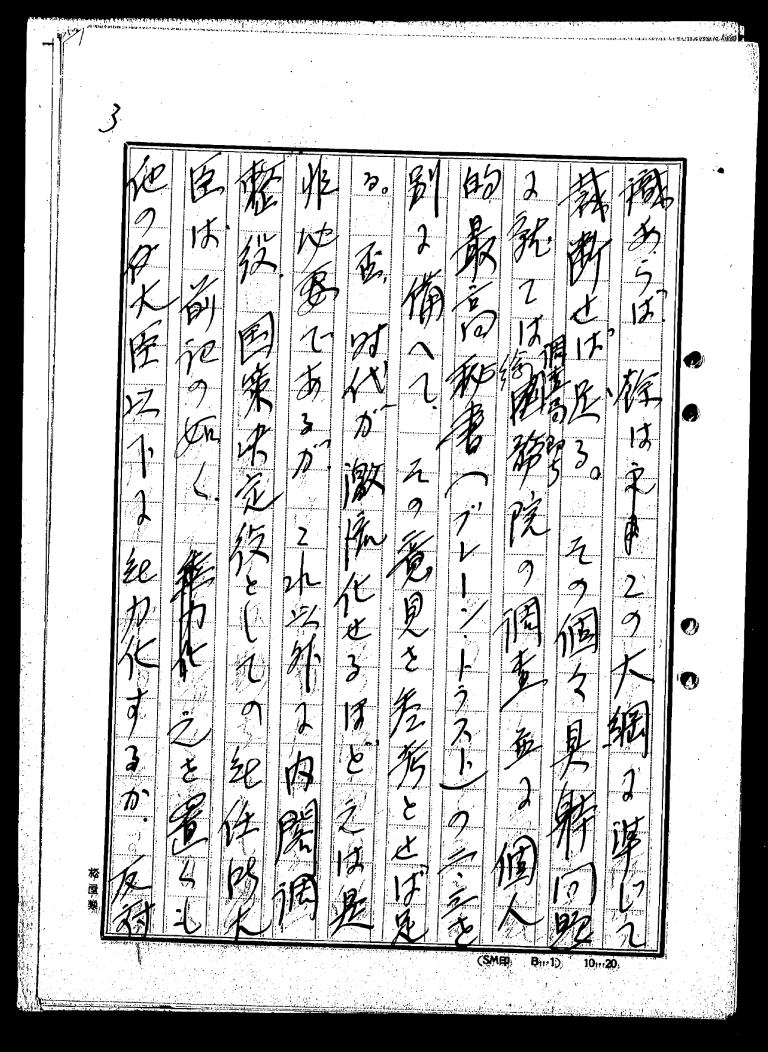 3
識あらば、餘は之この大綱に準じて
裁断せば足る。その個々具体問題
に就ては総国務院の調査並に個人
調査局
的最高秘書(ブレーン・トラスト)の二、三を
別に備へて、その意見を参考とせば足
る。
否、時代が激流化せるほど之は是
非必要であるが、これ以外に内閣調
整役、国策決定役としての無任所大
臣は、前記の如く、無力化 之を置くも
他の各大臣以下に無力化するか、反対
(SM印 B…1) 10…20